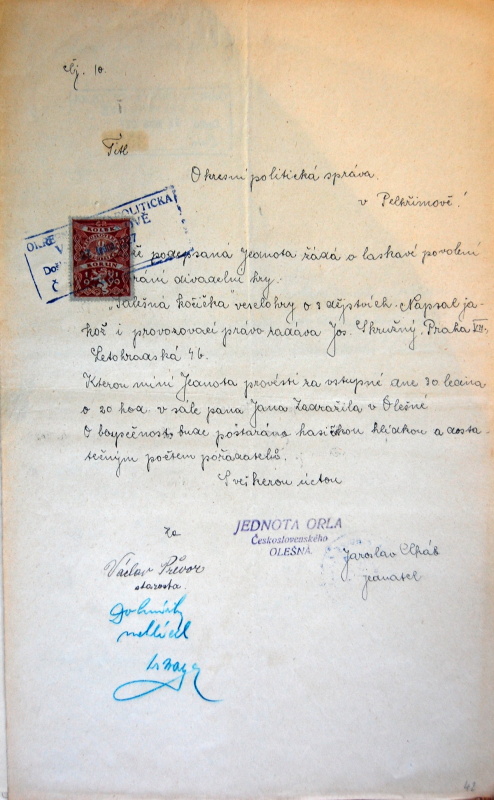 čj. 10.
Titl
Okresní politická správa
v Pelhřimově!
OKRE POLITICKÁ
V OVĚ
Do
Č
KOLEK
podepsaná Jednota žádá o laskavé povolení
divadelní hry.
kočička veselohry o 3 dějstvích. Napsal ja-
kož i provozovací právo zadává Jos. Skružný, Praha VII.
Letohradská 46.
Kterou míní Jednota provésti za vstupné dne 30 ledna
o 20 hod. v sále pana Jana Zadražila v Olešné
O bezpečnost bude postaráno hasičkou hlídkou a dosta-
tečným počtem pořadatelů.
S veškerou úctou
Za
JEDNOTA ORLA
Československého
OLEŠNÁ
Václav
starosta
Jaroslav
jednatel
42